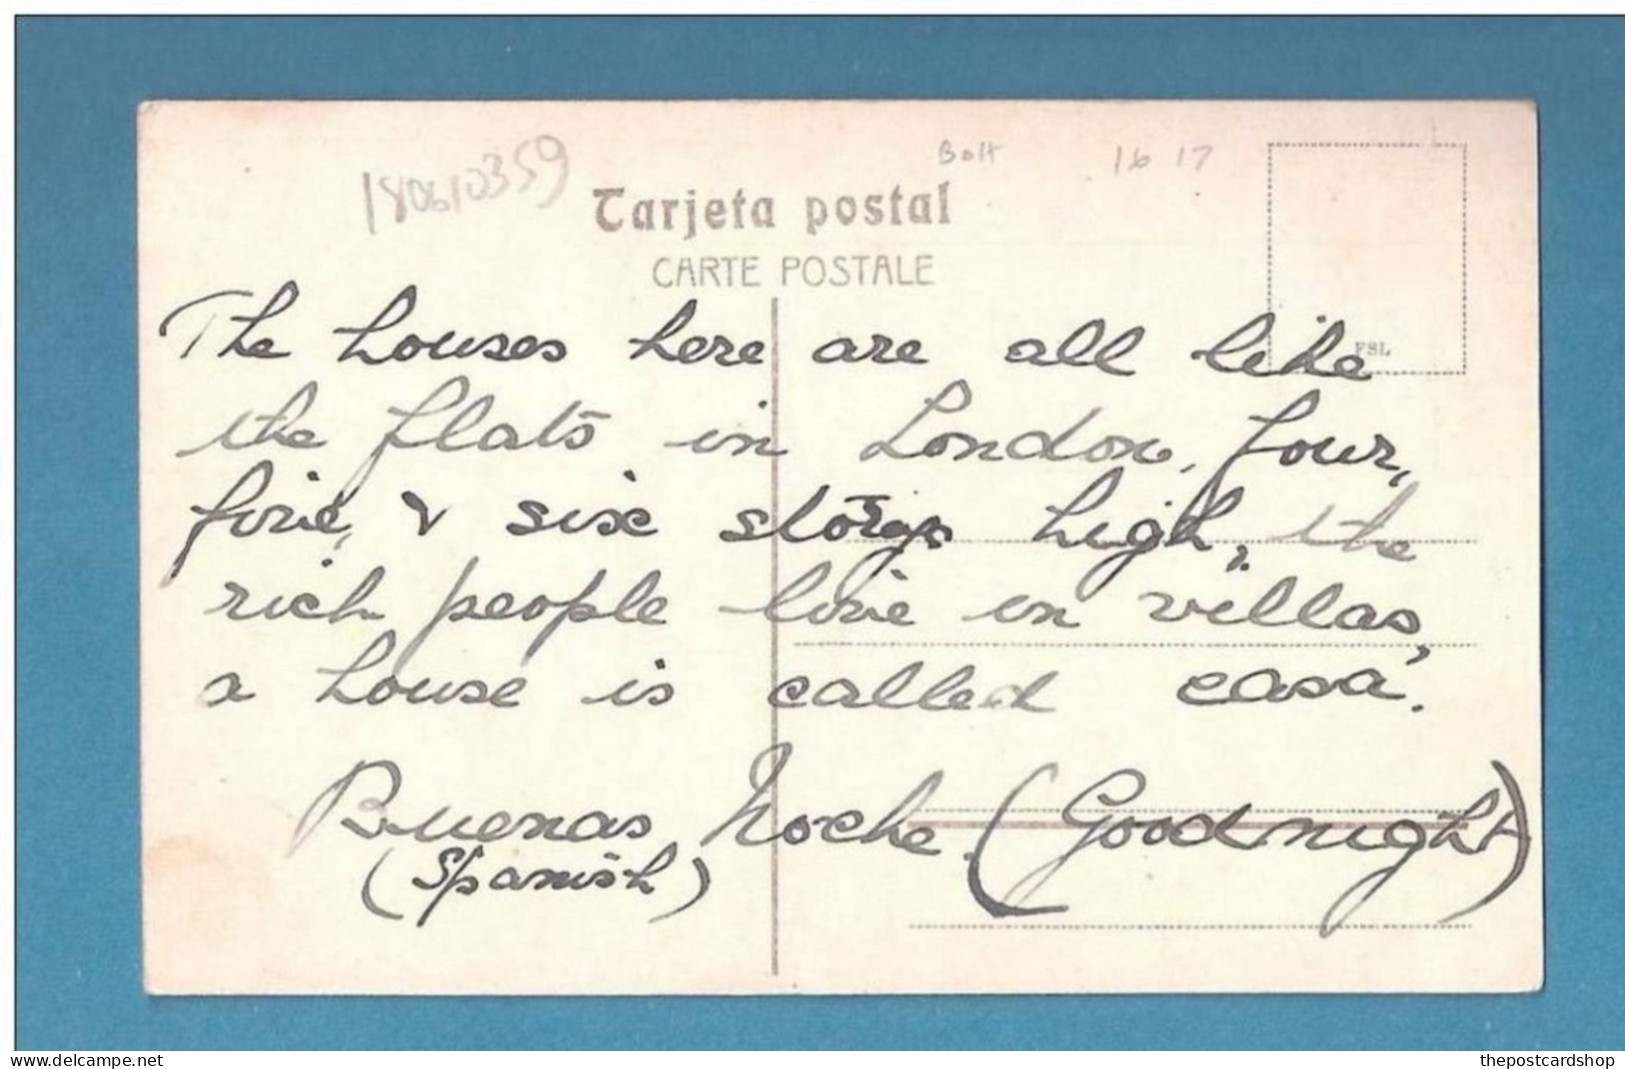 180610359
Bolt
16 17
Tarjeta postal
CARTE POSTALE
FSL
The houses here are all like
the flats in London, four,
five, & six storys high, the
rich people live in villas,
a house is called 'casa'.
Buenas Noche. (Goodnight)
(Spanish)
delcampe.net
thepostcardshop